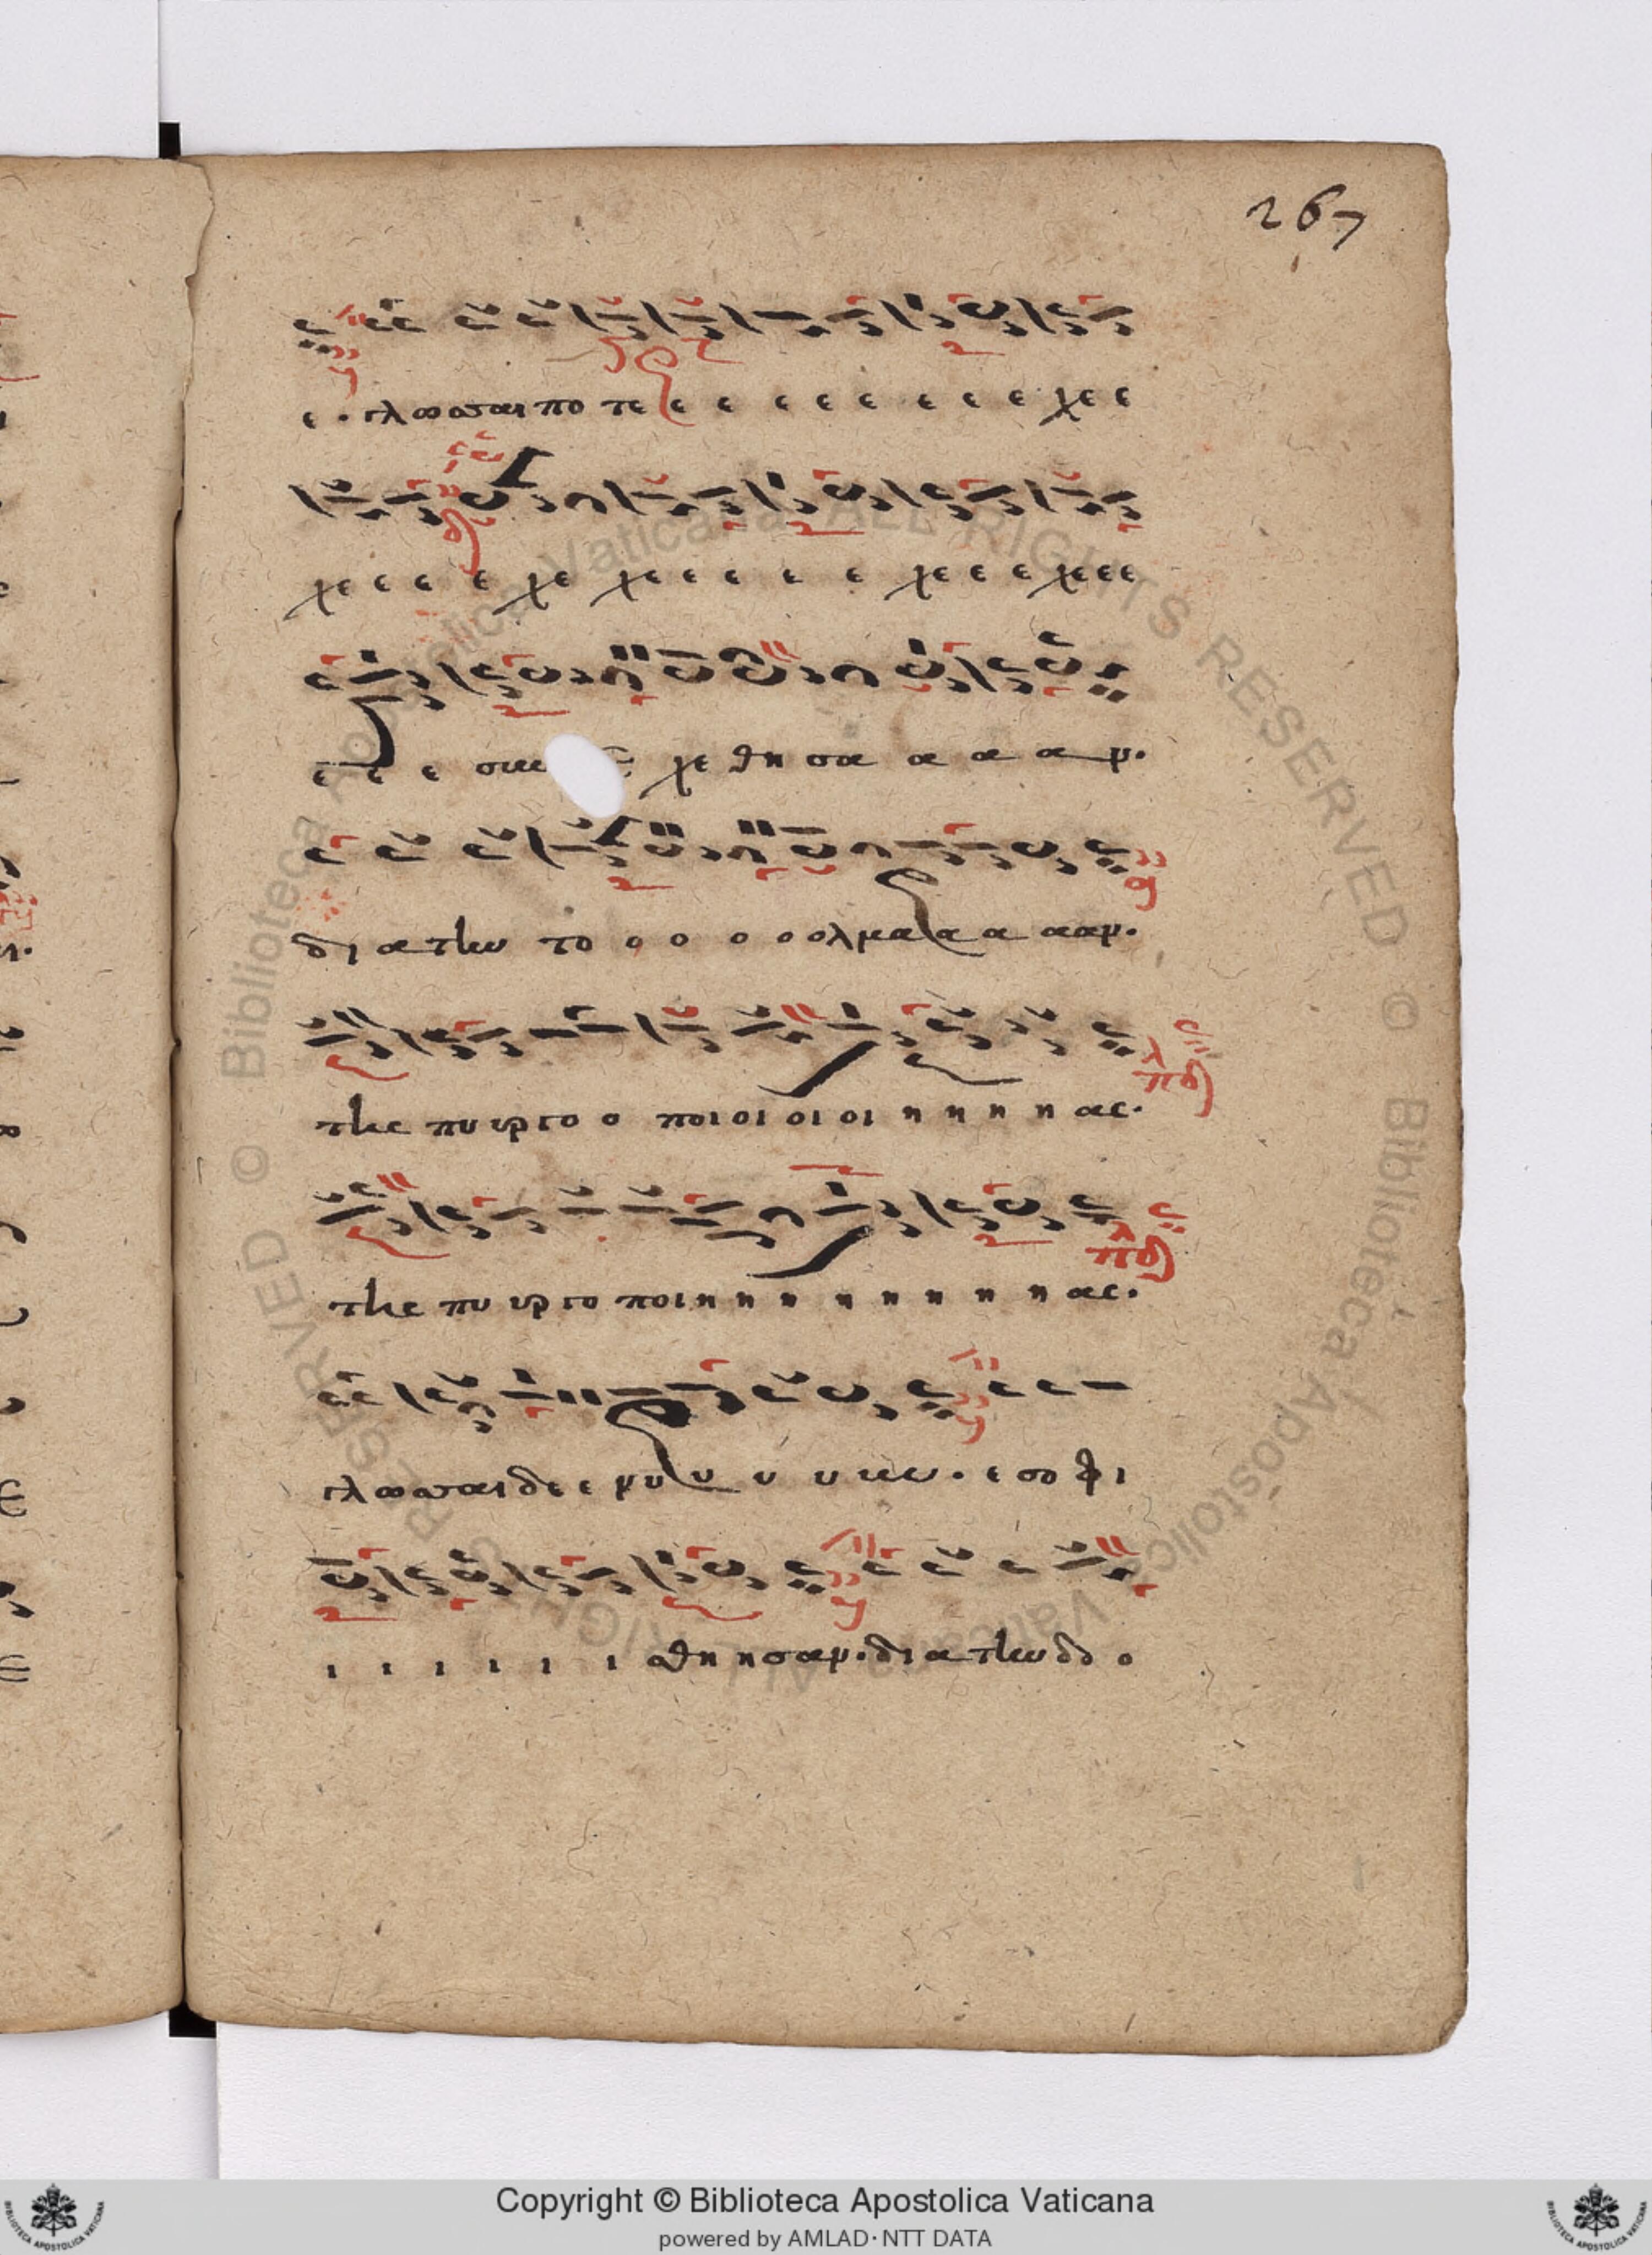 267
ε · γλωσσαι πο τε ε ε ε ε ε ε ε ε χε ε
χε ε ε ε χε χε ε ε ε ε χε ε ε χε ε ε
ε ε ε συν χε θη σα α α α ν.
δι α την το ο ο ο ο ολμα α α α αν.
της πυ υρ γο ο ποι οι οι οι η η η η ας.
της πυ υρ γο ποι η η η η η η η η ας.
γλωσσαι δε ε νυ υ υ υ υν. ε σο φι
ι ι ι ι ι ι σθη η σαν. δι α την δο ο
Copyright © Biblioteca Apostolica Vaticana
powered by AMLAD·NTT DATA